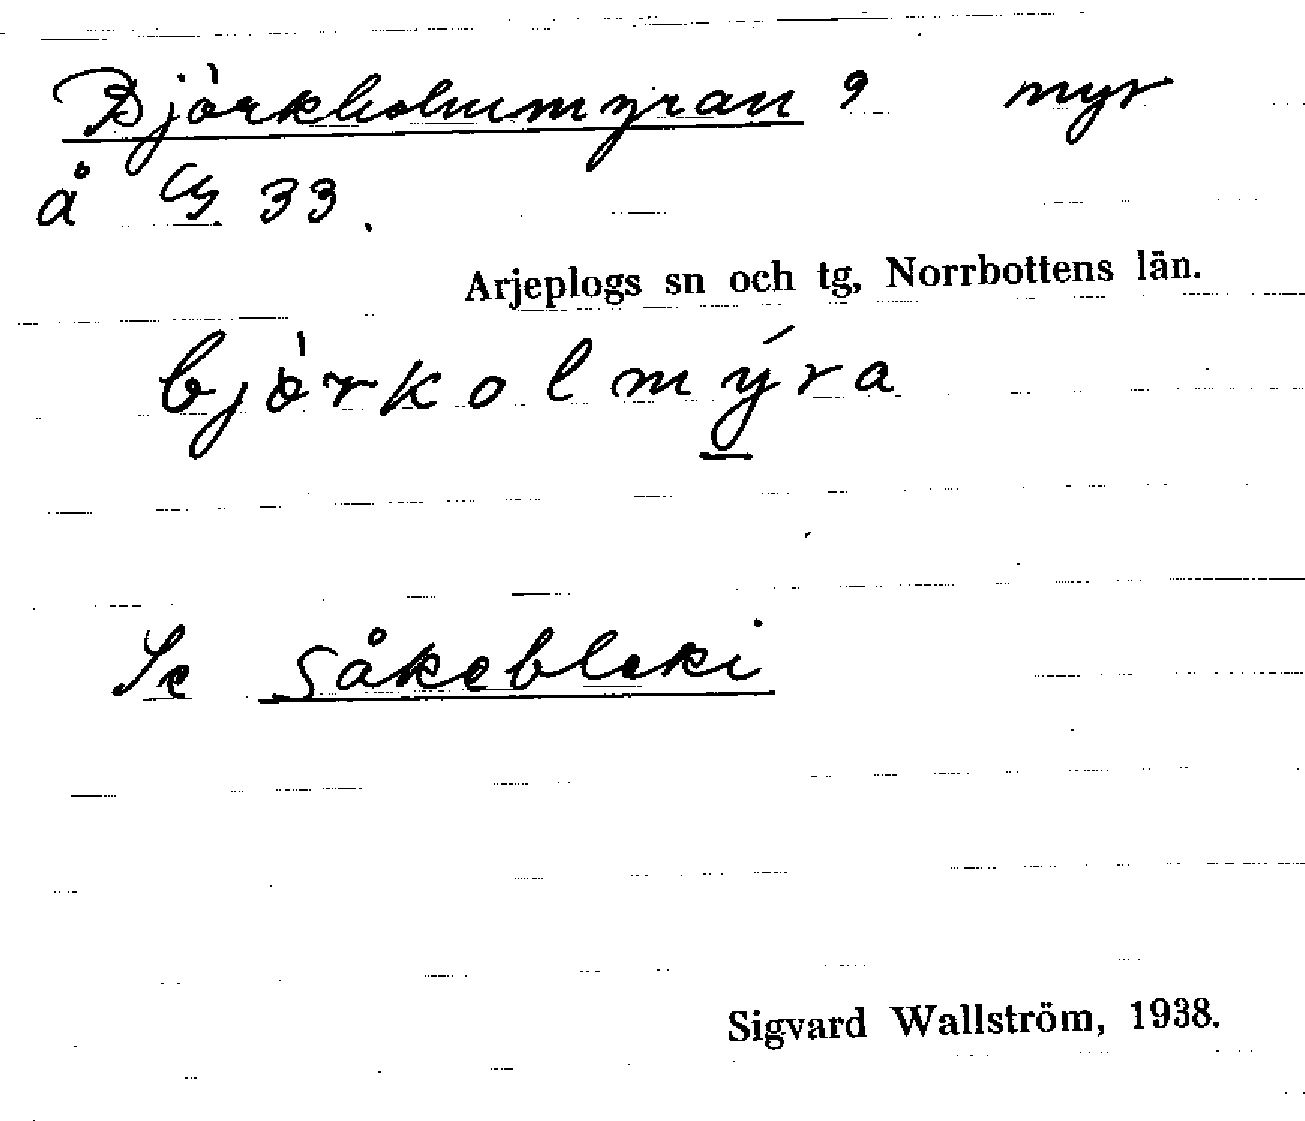 Björkholmmyran ? myr
å G 33.
Arjeplogs sn och tg, Norrbottens län.
bjòrkolmýra
Se såkebleki
Sigvard Wallström, 1938.